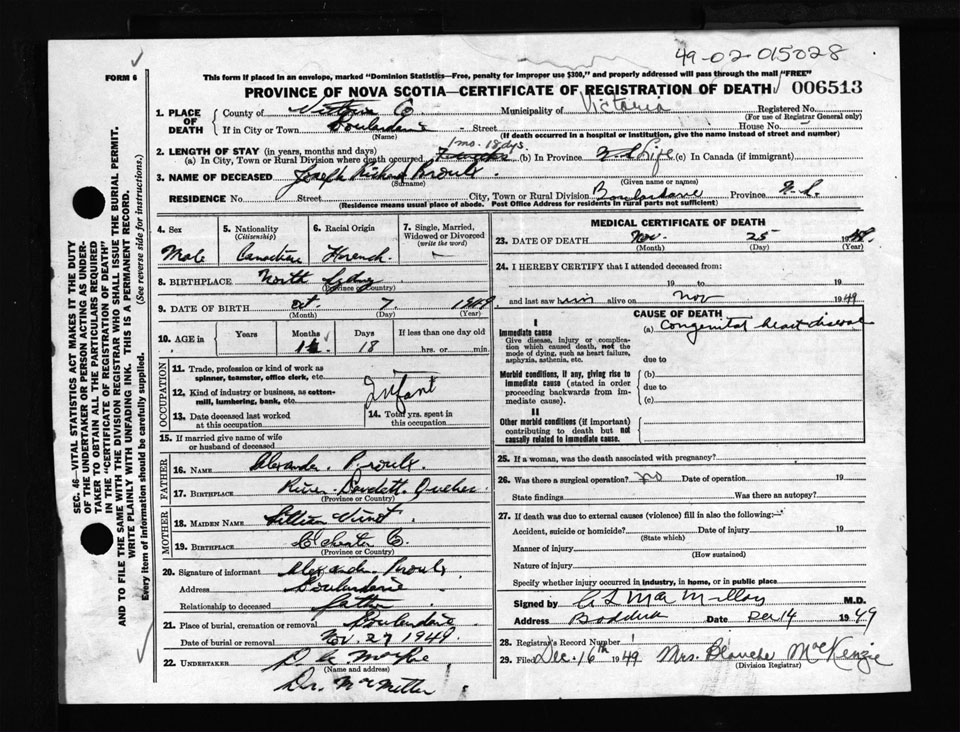 49-02-015028
FORM 6
This form if placed in an envelope, marked "Dominion Statistics—Free, penalty for improper use $300," and properly addressed will pass through the mail "FREE"
PROVINCE OF NOVA SCOTIA—CERTIFICATE OF REGISTRATION OF DEATH 006513
1. PLACE OF DEATH
County of Victoria Co Municipality of Victoria Registered No.
(For use of Registrar General only)
If in City or Town Boularderie Street House No.
(Name) (If death occurred in a hospital or institution, give the name instead of street and number)
2. LENGTH OF STAY (in years, months and days) 1 mo. 18 dys.
(a) In City, Town or Rural Division where death occurred (b) In Province Life (c) In Canada (if immigrant)
3. NAME OF DECEASED Joseph Richard Proulx
(Surname) (Given name or names)
RESIDENCE No. Street City, Town or Rural Division Boulardarie Province N.S.
(Residence means usual place of abode. Post Office Address for residents in rural parts not sufficient)
4. Sex
Male
5. Nationality
(Citizenship)
Canadian
6. Racial Origin
French
7. Single, Married, Widowed or Divorced
(write the word)
8. BIRTHPLACE North Sydney
(Province or Country)
9. DATE OF BIRTH Oct 7 1949
(Month) (Day) (Year)
10. AGE in Years Months Days If less than one day old
1 18 hrs. or min.
OCCUPATION
11. Trade, profession or kind of work as spinner, teamster, office clerk, etc.
12. Kind of industry or business, as cotton-mill, lumbering, bank, etc. Infant
13. Date deceased last worked at this occupation
14. Total yrs. spent in this occupation
15. If married give name of wife or husband of deceased
FATHER
16. NAME Alexander Proulx
17. BIRTHPLACE River Quebec
(Province or Country)
MOTHER
18. MAIDEN NAME Lillian
19. BIRTHPLACE Colchester Co.
(Province or Country)
20. Signature of informant Alexander Proulx
Address Boularderie
Relationship to deceased father
21. Place of burial, cremation or removal Boularderie
Date of burial or removal Nov. 27 1949
22. UNDERTAKER D.
(Name and address)
Dr. McMillan
MEDICAL CERTIFICATE OF DEATH
23. DATE OF DEATH Nov. 25 19
(Month) (Day) (Year)
24. I HEREBY CERTIFY that I attended deceased from:
19 to 19
and last saw him alive on Nov 1949
CAUSE OF DEATH
I
Immediate cause (a) Congenital heart disease
Give disease, injury or complication which caused death, not the mode of dying, such as heart failure, asphyxia, asthenia, etc.
due to
Morbid conditions, if any, giving rise to immediate cause (stated in order proceeding backwards from immediate cause).
(b)
due to
(c)
II
Other morbid conditions (if important) contributing to death but not causally related to immediate cause.
25. If a woman, was the death associated with pregnancy?
26. Was there a surgical operation? no Date of operation 19
State findings Was there an autopsy?
27. If death was due to external causes (violence) fill in also the following:—
Accident, suicide or homicide? Date of injury 19
(State which)
Manner of injury
(How sustained)
Nature of injury
Specify whether injury occurred in industry, in home, or in public place
Signed by C L MacMillan M.D.
Address Baddeck Date Dec 14 1949
28. Registrar's Record Number 1
29. Filed Dec. 16th 1949 Mrs. Blanche MacKenzie
(Division Registrar)
SEC. 46—VITAL STATISTICS ACT MAKES IT THE DUTY
OF THE UNDERTAKER OR PERSON ACTING AS UNDER-
TAKER TO OBTAIN ALL THE PARTICULARS REQUIRED
IN THE "CERTIFICATE OF REGISTRATION OF DEATH"
AND TO FILE THE SAME WITH THE DIVISION REGISTRAR WHO SHALL ISSUE THE BURIAL PERMIT.
WRITE PLAINLY WITH UNFADING INK. THIS IS A PERMANENT RECORD.
Every item of information should be carefully supplied. (See reverse side for instructions.)